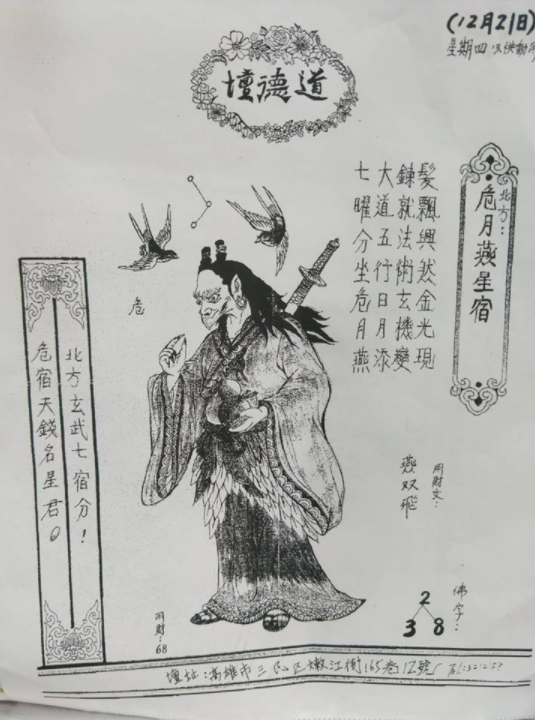 (12月21日)
星期四
道德壇
北方：
危月燕星宿
髮飄興然金光現
鍊就法術玄機變
大道五行日月添
七曜分坐危月燕
危
北方玄武七宿分！
危宿天錢名星君。
用財文：
燕双飛
佛字：
2
3 8
用財：68
壇址：高雄市三民區嫩江街165巷12號